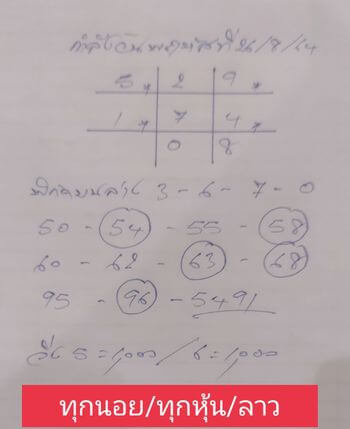 กำลังวันพฤหัสที่ 26/8/64
5 * 2 9 *
1 * 7 4 *
0 8
3 - 6 - 7 - 0
50 - 54 - 55 - 58
60 - 62 - 63 - 68
95 - 96 - 5491
วิ่ง 5 = 1,000 / 6 = 1,000
ทุกนอย/ทุกหุ้น/ลาว